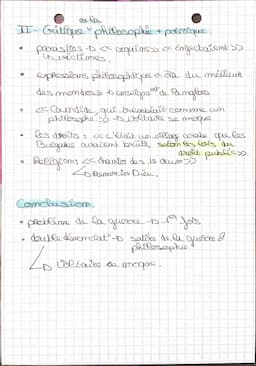 de la
II - Critique philosophie + politique
parasites → << coquins >> << infectaient >>
→ victimes.
expressions philosophique << ôta du meilleur
des mondes >> → enseignemt de Pangloss
<< Candide, qui tremblait comme un
philosophe >> → Voltaire se moque
Les droits : << c'était un village abare que les
Bulgares avaient brûlé, selon les lois du
droit public >>
Religion : << chanter des Te deum >>
→ Remercier Dieu.
Conclusion
problème de la guerre → 1ère fois
double dénonciat° → satire de la guerre &
philosophie
→ Voltaire se moque.